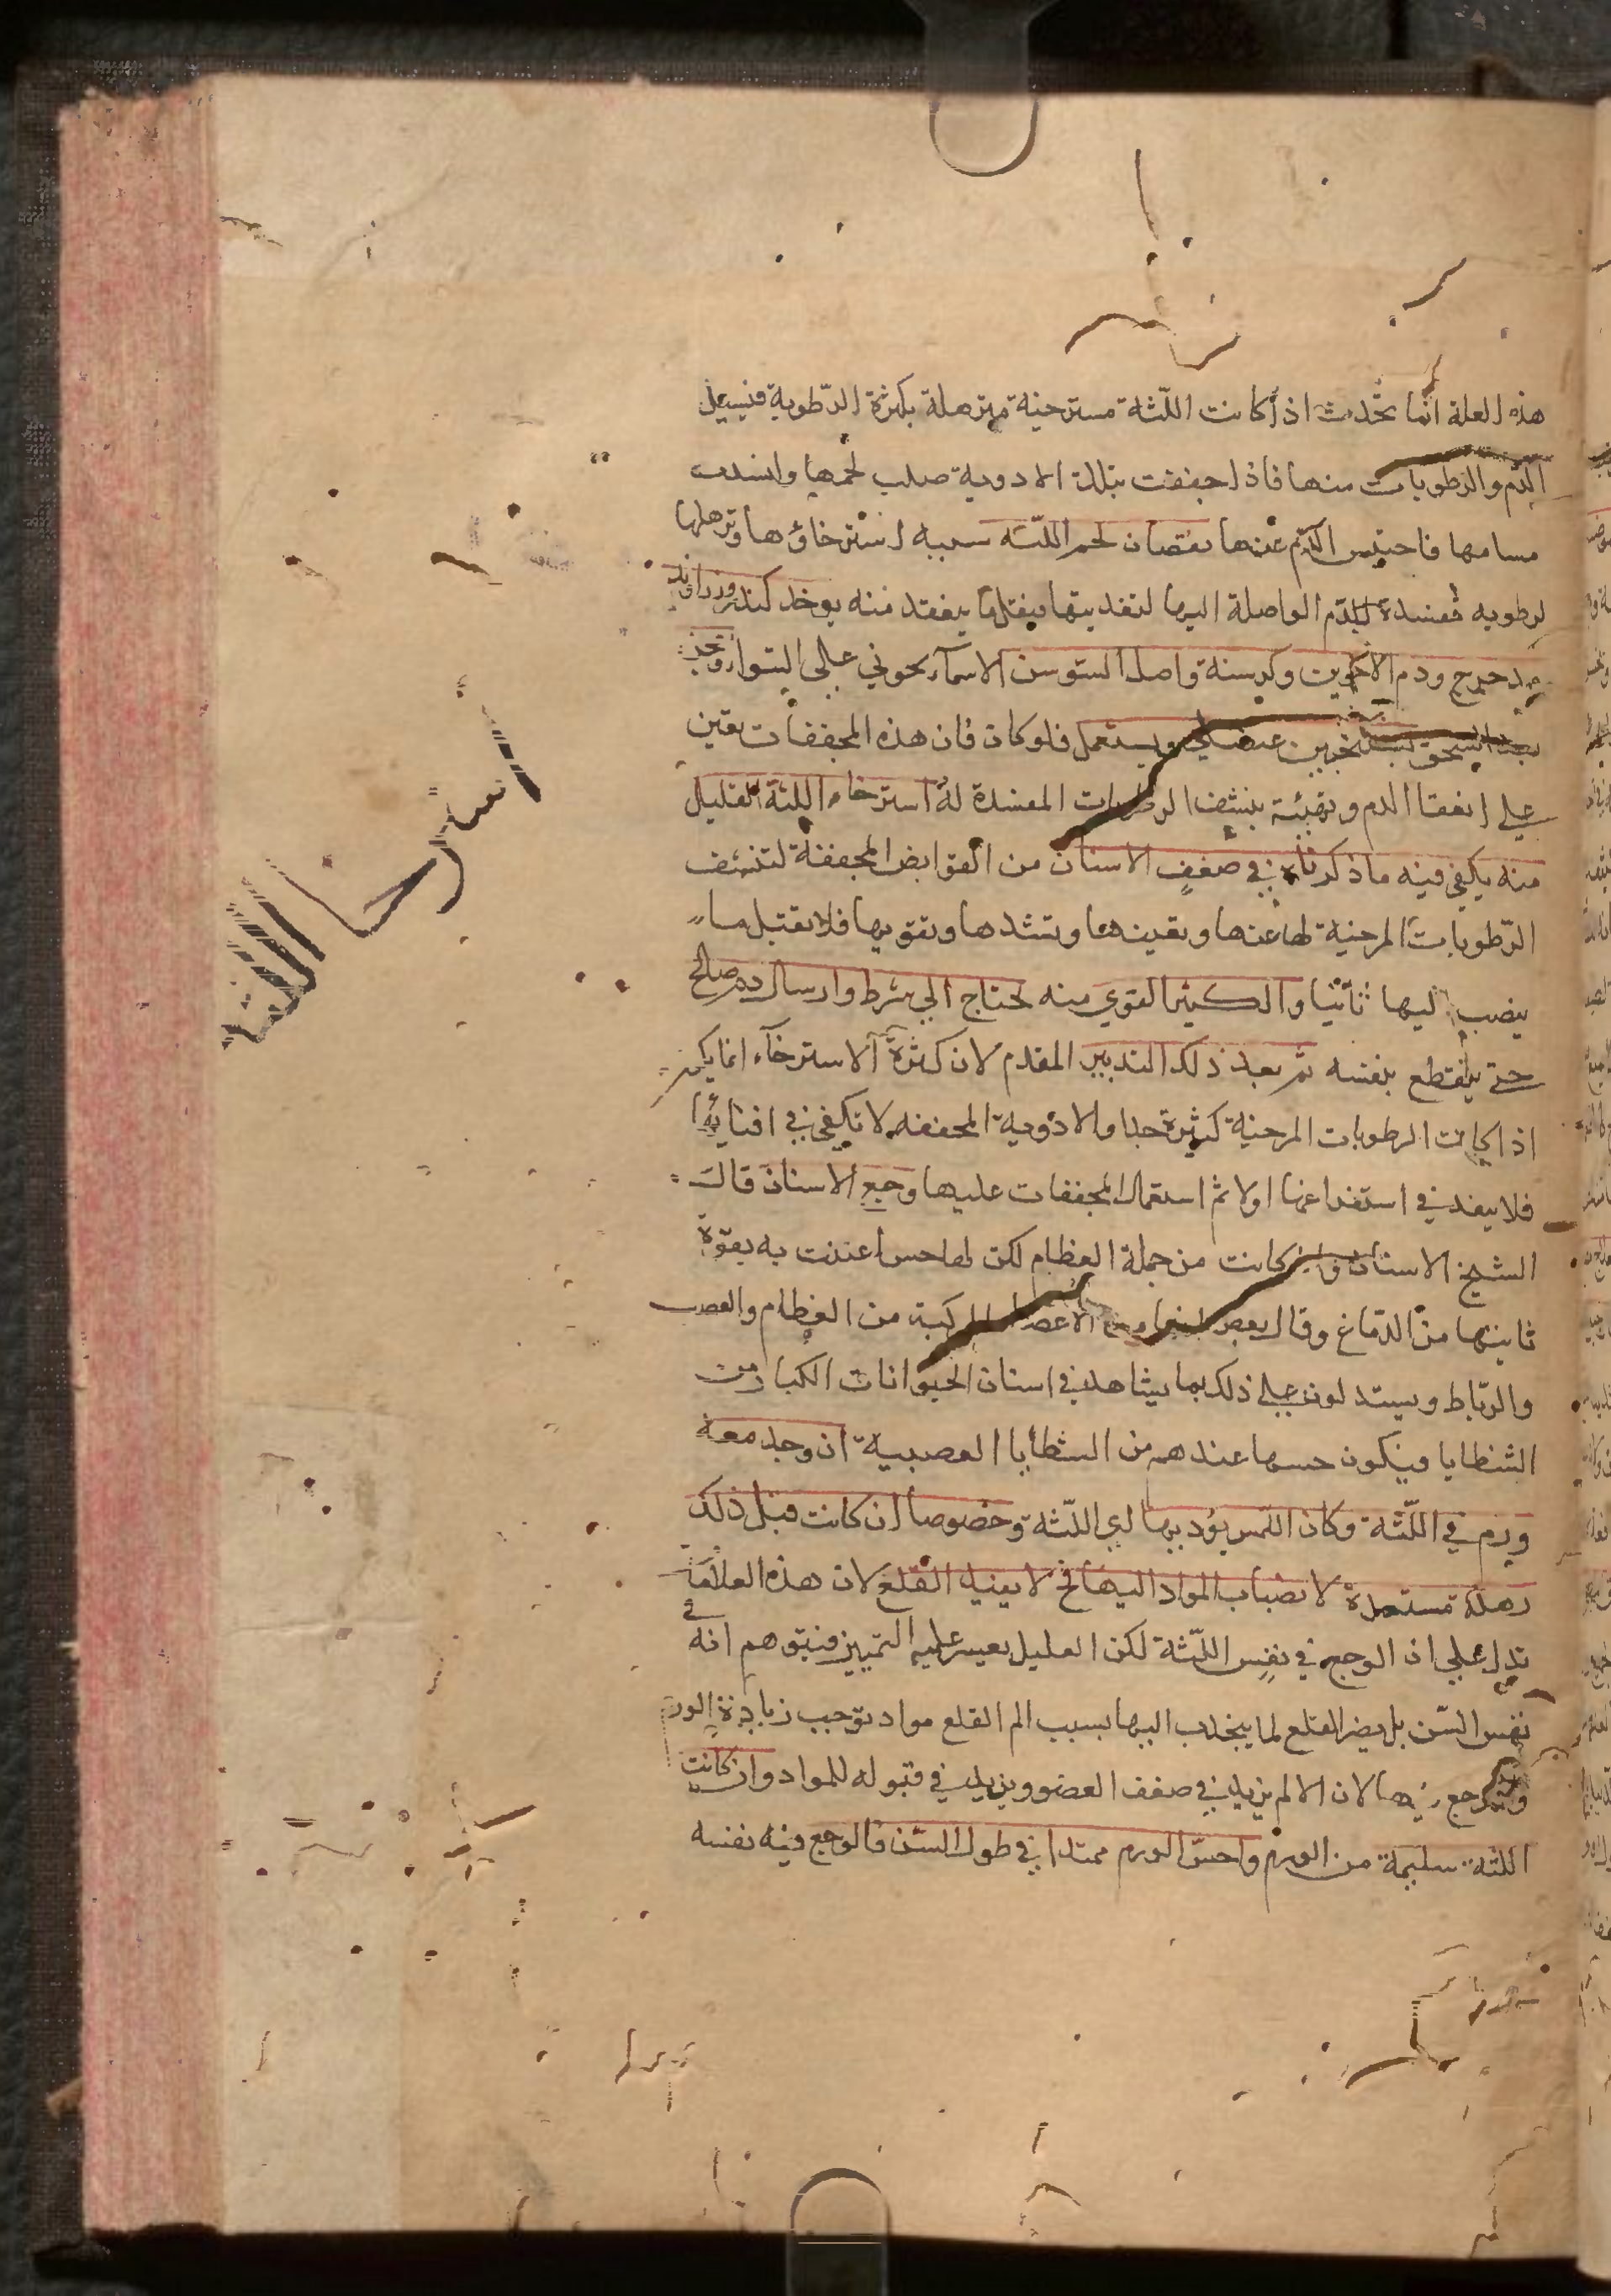 هذه العلة انما تحدث اذا كانت اللثة مسترخية مترهلة بكثرة الرطوبة فيسيل
الدم والرطوبات منها فاذا جففت بتلك الادوية صلب لحمها وانسدت
مسامها فاحتبس الدم عنها نقصان لحم اللثة سببه استرخاؤها وترهلها
لرطوبه مفسدة للدم الواصلة اليها لتغذيتها فيقل ما ينعقد منه يوخد كندر وزراوند
مدحرج ودم الاخوين وكرسنة واصل السوسن الاسمآء بحوني على السوا
بعد السحق بسكنجبين عنصلي ويستعمل فلو كان فان هذه المجففات تعين
على انعقا الدم وتهيئه بنشف الرطوبات المفسدة له استرخاء اللثة القليل
منه يكفي فيه ما ذكرناه في ضعف الاسنان من القوابض المجففة لتنشف
الرطوبات المرخية لها عنها وتعينها وتشدها وتقويها فلا تقبل ما
ينصب اليها ثانيا والكثير القوي منه يحتاج الى شرط وارسال دم صالح
حتى ينقطع بنفسه ثم بعد ذلك التدبير المقدم لان كثرة الاسترخآء انما يكون
اذا كانت الرطوبات المرخية كثيرة جدا والادوية المجففه لا تكفي في افنائها
فلا بد في استفراغها اولا ثم استعمال المجففات عليها وجع الاسنان قال
الشيخ الاسنان وان كانت من جملة العظام لكن لها حس اعينت به بقوة
تاتيها من الدماغ وقال بعضهم انها من الاعضا المركبة من العظام والعصب
والرباط ويستدلون على ذلك بما يشاهد في اسنان الحيوانات الكبار من
الشظايا فيكون حسها عندهم من الشظايا العصبية ان وجد معه
ورم في اللثة وكان اللمس يؤديها اي اللثة وخصوصا ان كانت قبل ذلك
رهلة مستعدة لانصباب المواد اليها فح لا يفيد القلع لان هذه العلامة
تدل على ان الوجع في نفس اللثة لكن العليل يعسر عليه التمييز فيتوهم انه في
نفس السن بل يضر القلع لما ينجذب اليها بسبب الم القلع مواد توجب زيادة الورم
والوجع فيها لان الالم يزيد في ضعف العضو ويزيد في قبوله للمواد وان كانت
اللثة سليمة من الورم واحس الورم ممتدا في طول السن فالوجع فيه نفسه